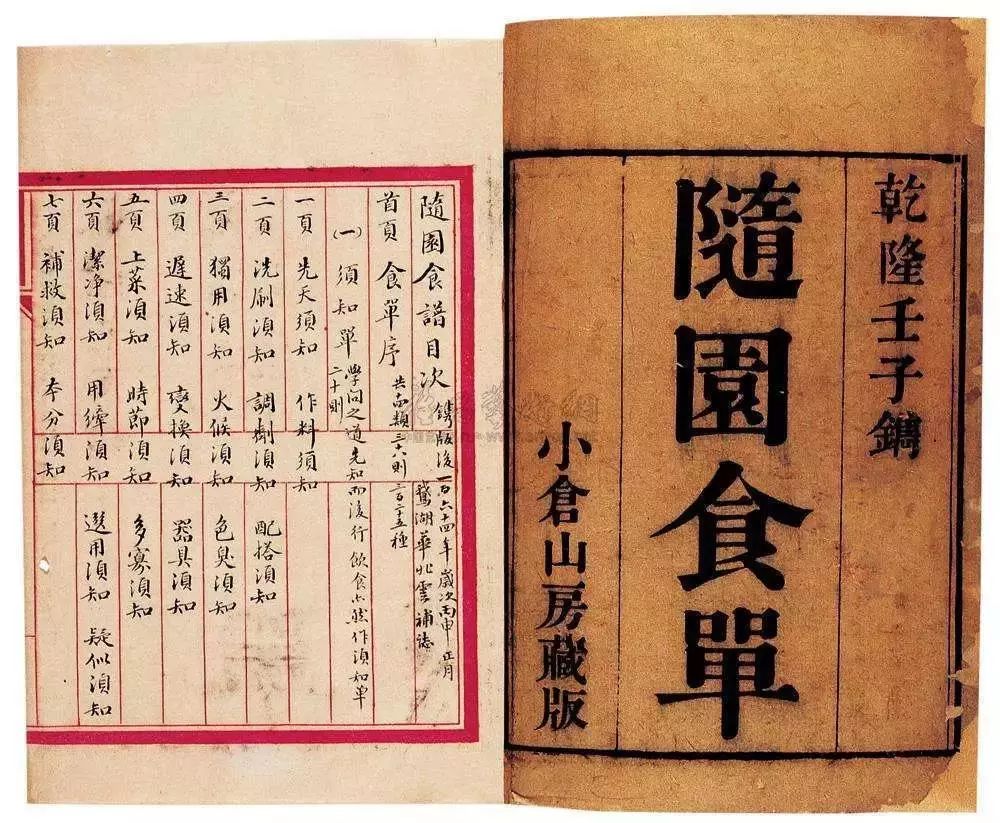 乾隆壬子鐫
隨園食單
小倉山房藏版
隨園食譜目次 鐫版後一百六十四年歲次丙申正月
鵝湖華北雲補誌
首頁 食單序 共十四類三十八則三百二十五種
(一) 須知單 學問之道先知而後行飲食亦然作須知單
二十則
一頁 先天須知 作料須知
二頁 洗刷須知 調劑須知 配搭須知
三頁 獨用須知 火候須知 色臭須知
四頁 遲速須知 變換須知 器具須知
五頁 上菜須知 時節須知 多寡須知
六頁 潔净須知 用縴須知 選用須知 疑似須知
七頁 補救須知 本分須知